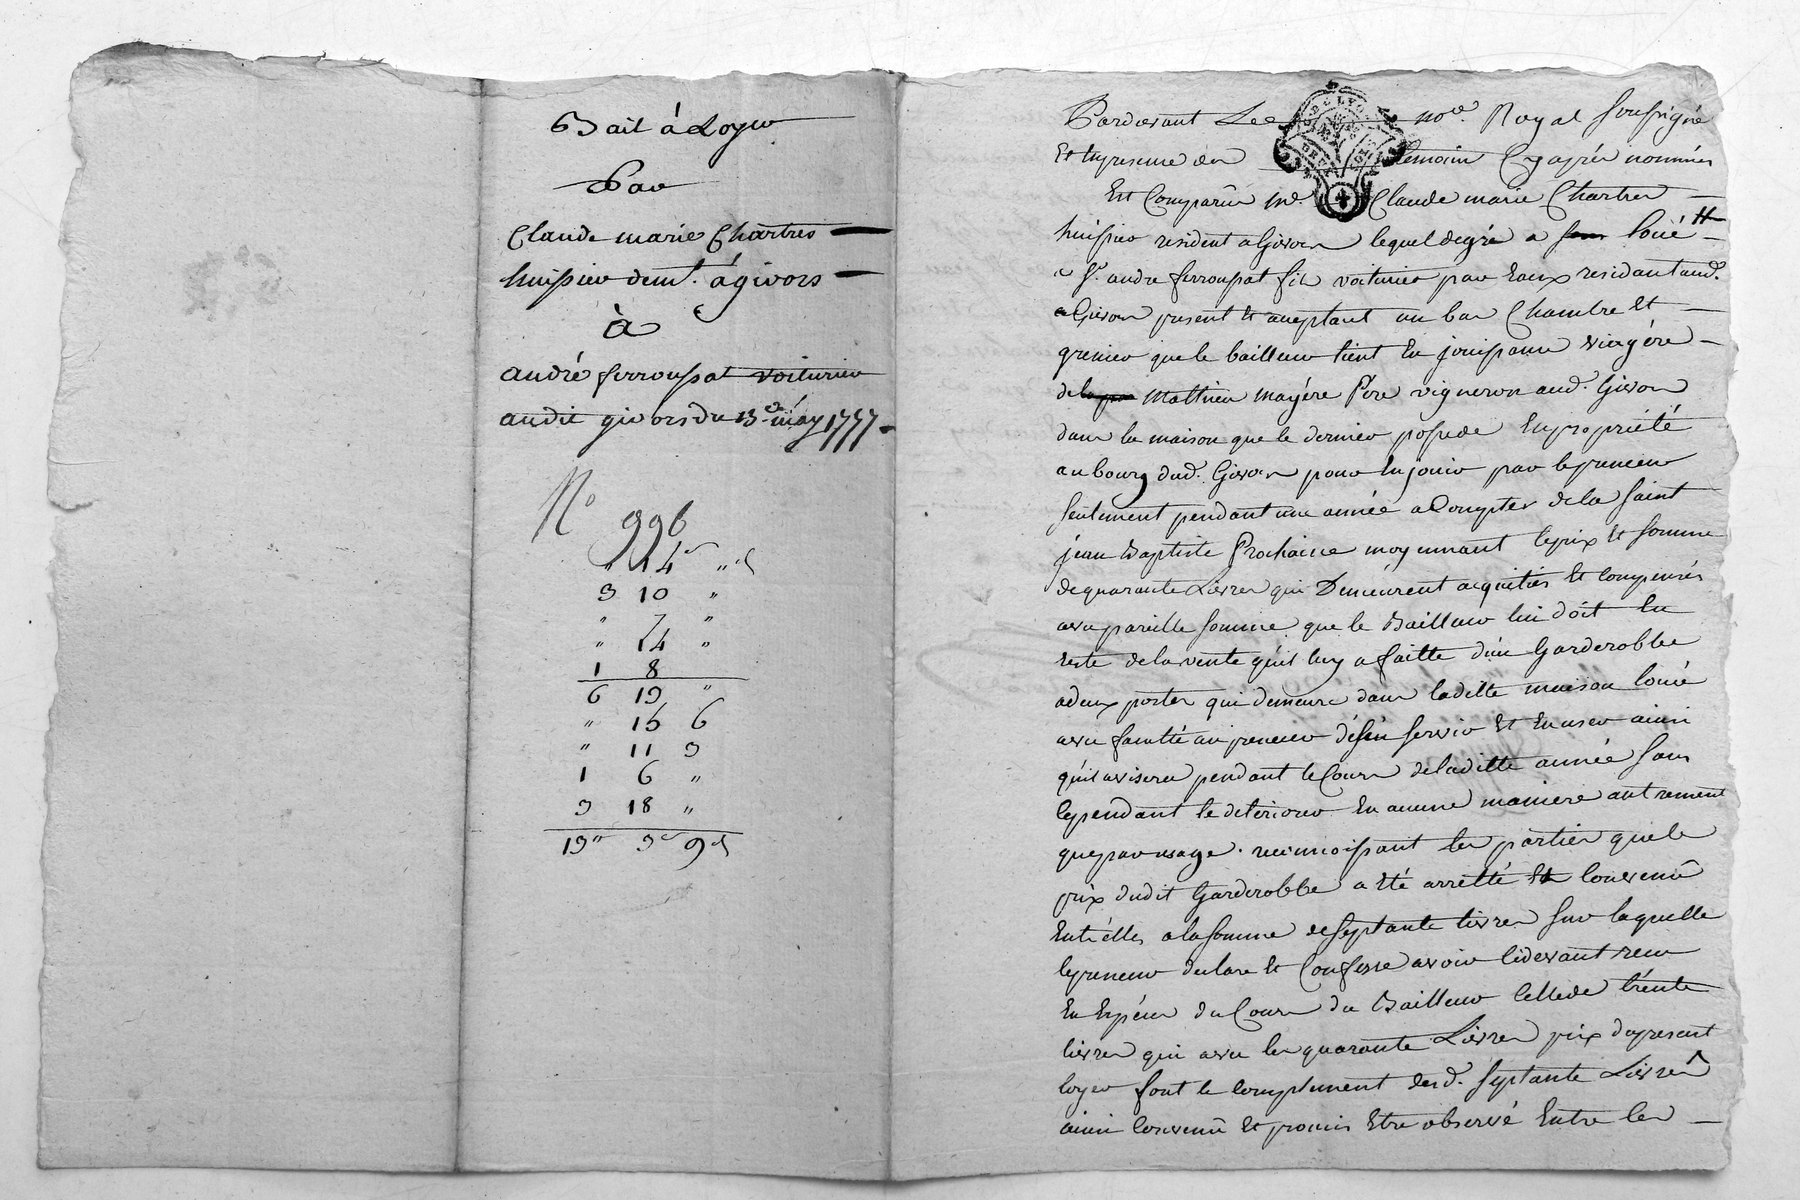 Bail à Loyer
Par
Claude marie Chartres
huissier demt. à givors
à
andré ferroussat voiturier
audit givors du 13e may 1777
No 996
" 14s "d
3 10 "
" 7 "
" 14 "
1 8
6 19 "
" 15 6
" 11 3
1 6 "
3 18 "
13" 3s 9d
Pardevant Le no.re Royal soussigné
Et En presence des temoins Cy apres nommés
Est Comparu me. Claude marie Chartres
huissier resident a Givors lequel degré a loué #
a sr. andre ferroussat fils voiturier par Eaux residant aud.
a Givors present et acceptant un bas Chambre Et
grenier que le bailleur tient En jouissance viagére
de Mathieu mayére Pére vigneron aud. Givors
dans la maison que le dernier possede En propriété
au bourg dud. Givors pour En jouir par le preneur
seulement pendant une année a Compter de la saint
jean Baptiste Prochaine moyennant le prix Et somme
de quarante Livres qui Demeurent acquittés Et Compensés
avec pareille somme que le Bailleur lui doit En
reste de la vente qu'il luy a faitte d'un Garderobbe
a deux portes qui demeure dans laditte maison loué
avec faculté au preneur de s'en servir Et En user ainsi
qu'il avisera pendant le Cours de laditte année sans
Cependant le deteriorer En aucune maniere autrement
que par usage. reconnoissant les parties que le
prix dudit Garderobbe a eté arretté Et Convenu
Entr'elles a la somme de septante livres sur laquelle
le preneur declare Et Confesse avoir Cidevant recu
En Espéces du Cours du Bailleur Celle de trente
livres qui avec les quarante Livres prix du present
loyer font le Complement desd. septante Livres
ainsi Convenu Et promis Etre observé Entre les